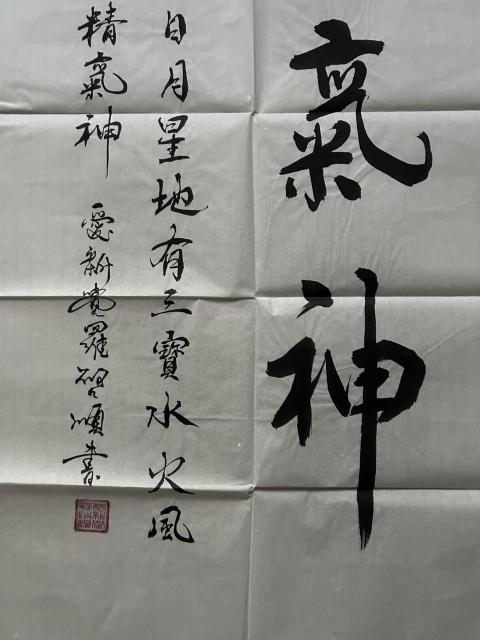 氣神
日月星地有三寶水火風
精氣神
愛新覺羅啓順書